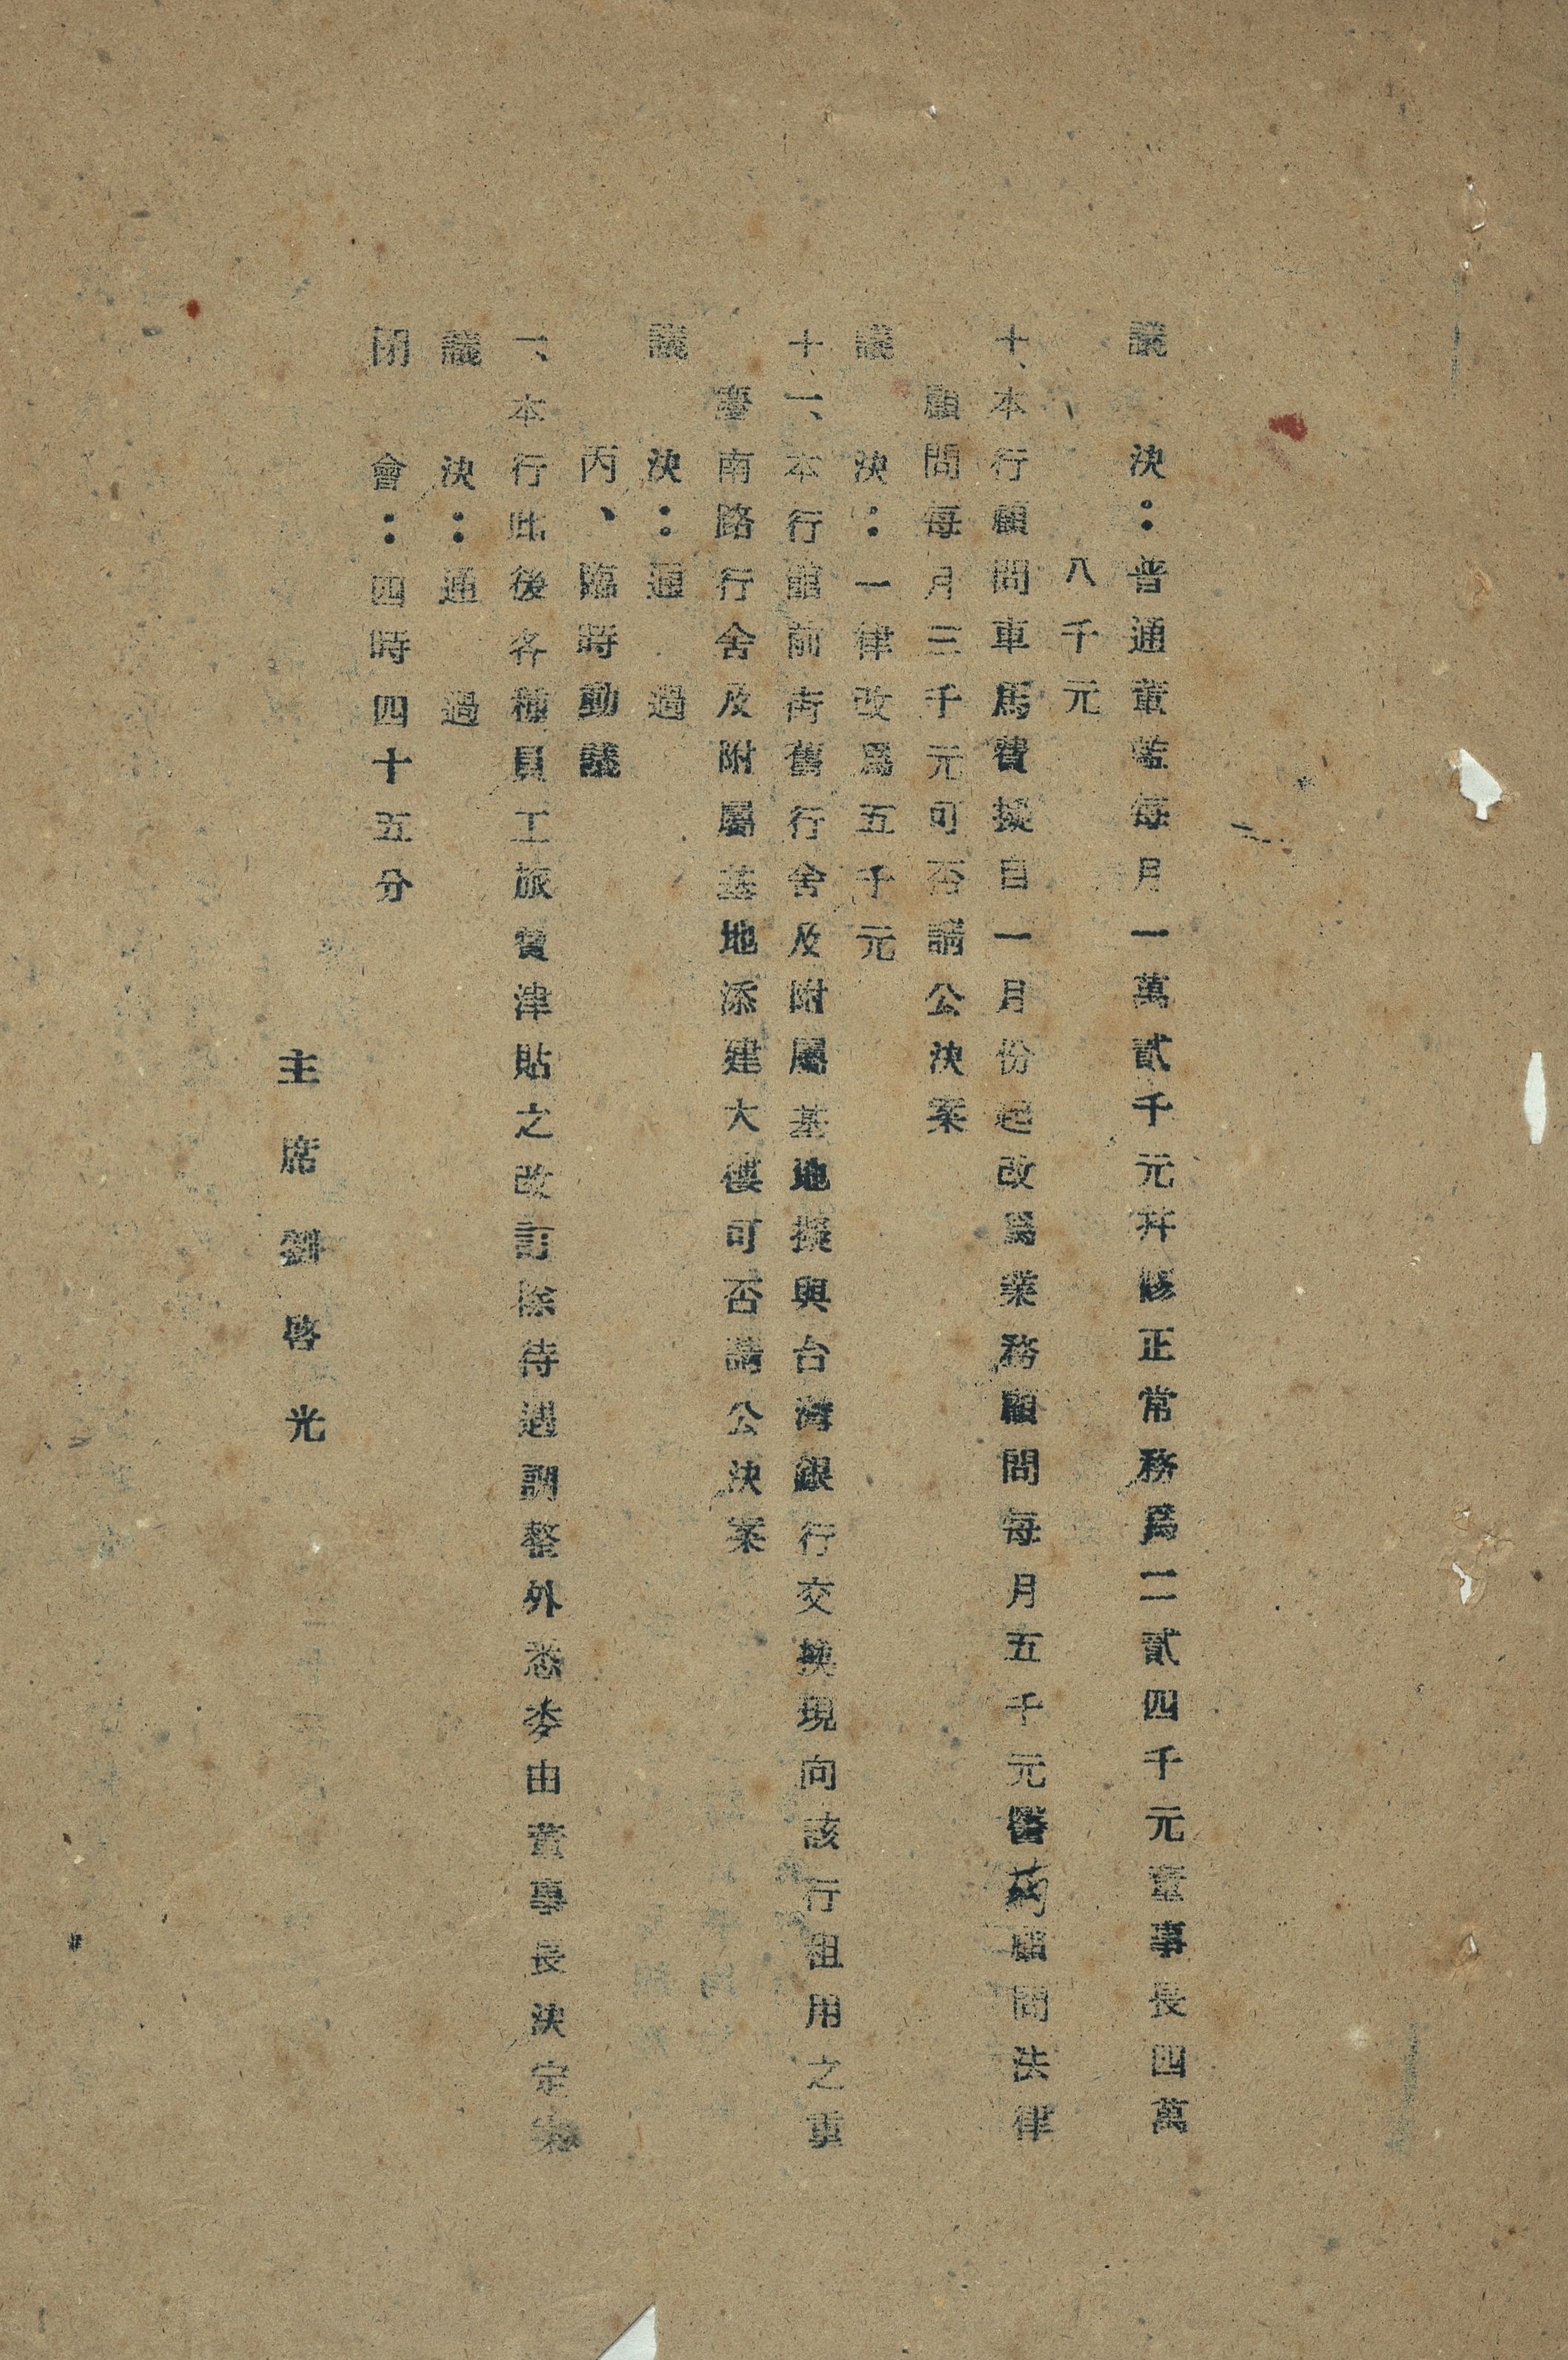 議　決：普通董監每月一萬貳千元并修正常務爲二貳四千元董事長四萬
八千元
十、本行顧問車馬費擬自一月份起改爲業務顧問每月五千元醫药顧問法律
顧問每月三千元可否請公決案
議　決：一律改爲五千元
十一、本行館前街舊行舍及附屬基地擬與台灣銀行交換現向該行租用之重
慶南路行舍及附屬基地添建大樓可否請公決案
議　決：通　過
丙、臨時動議
一、本行此後各種員工旅費津貼之改訂除待遇調整外悉由董事長決定案
議　決：通　過
閉　會：四時四十五分
主席　劉啓光